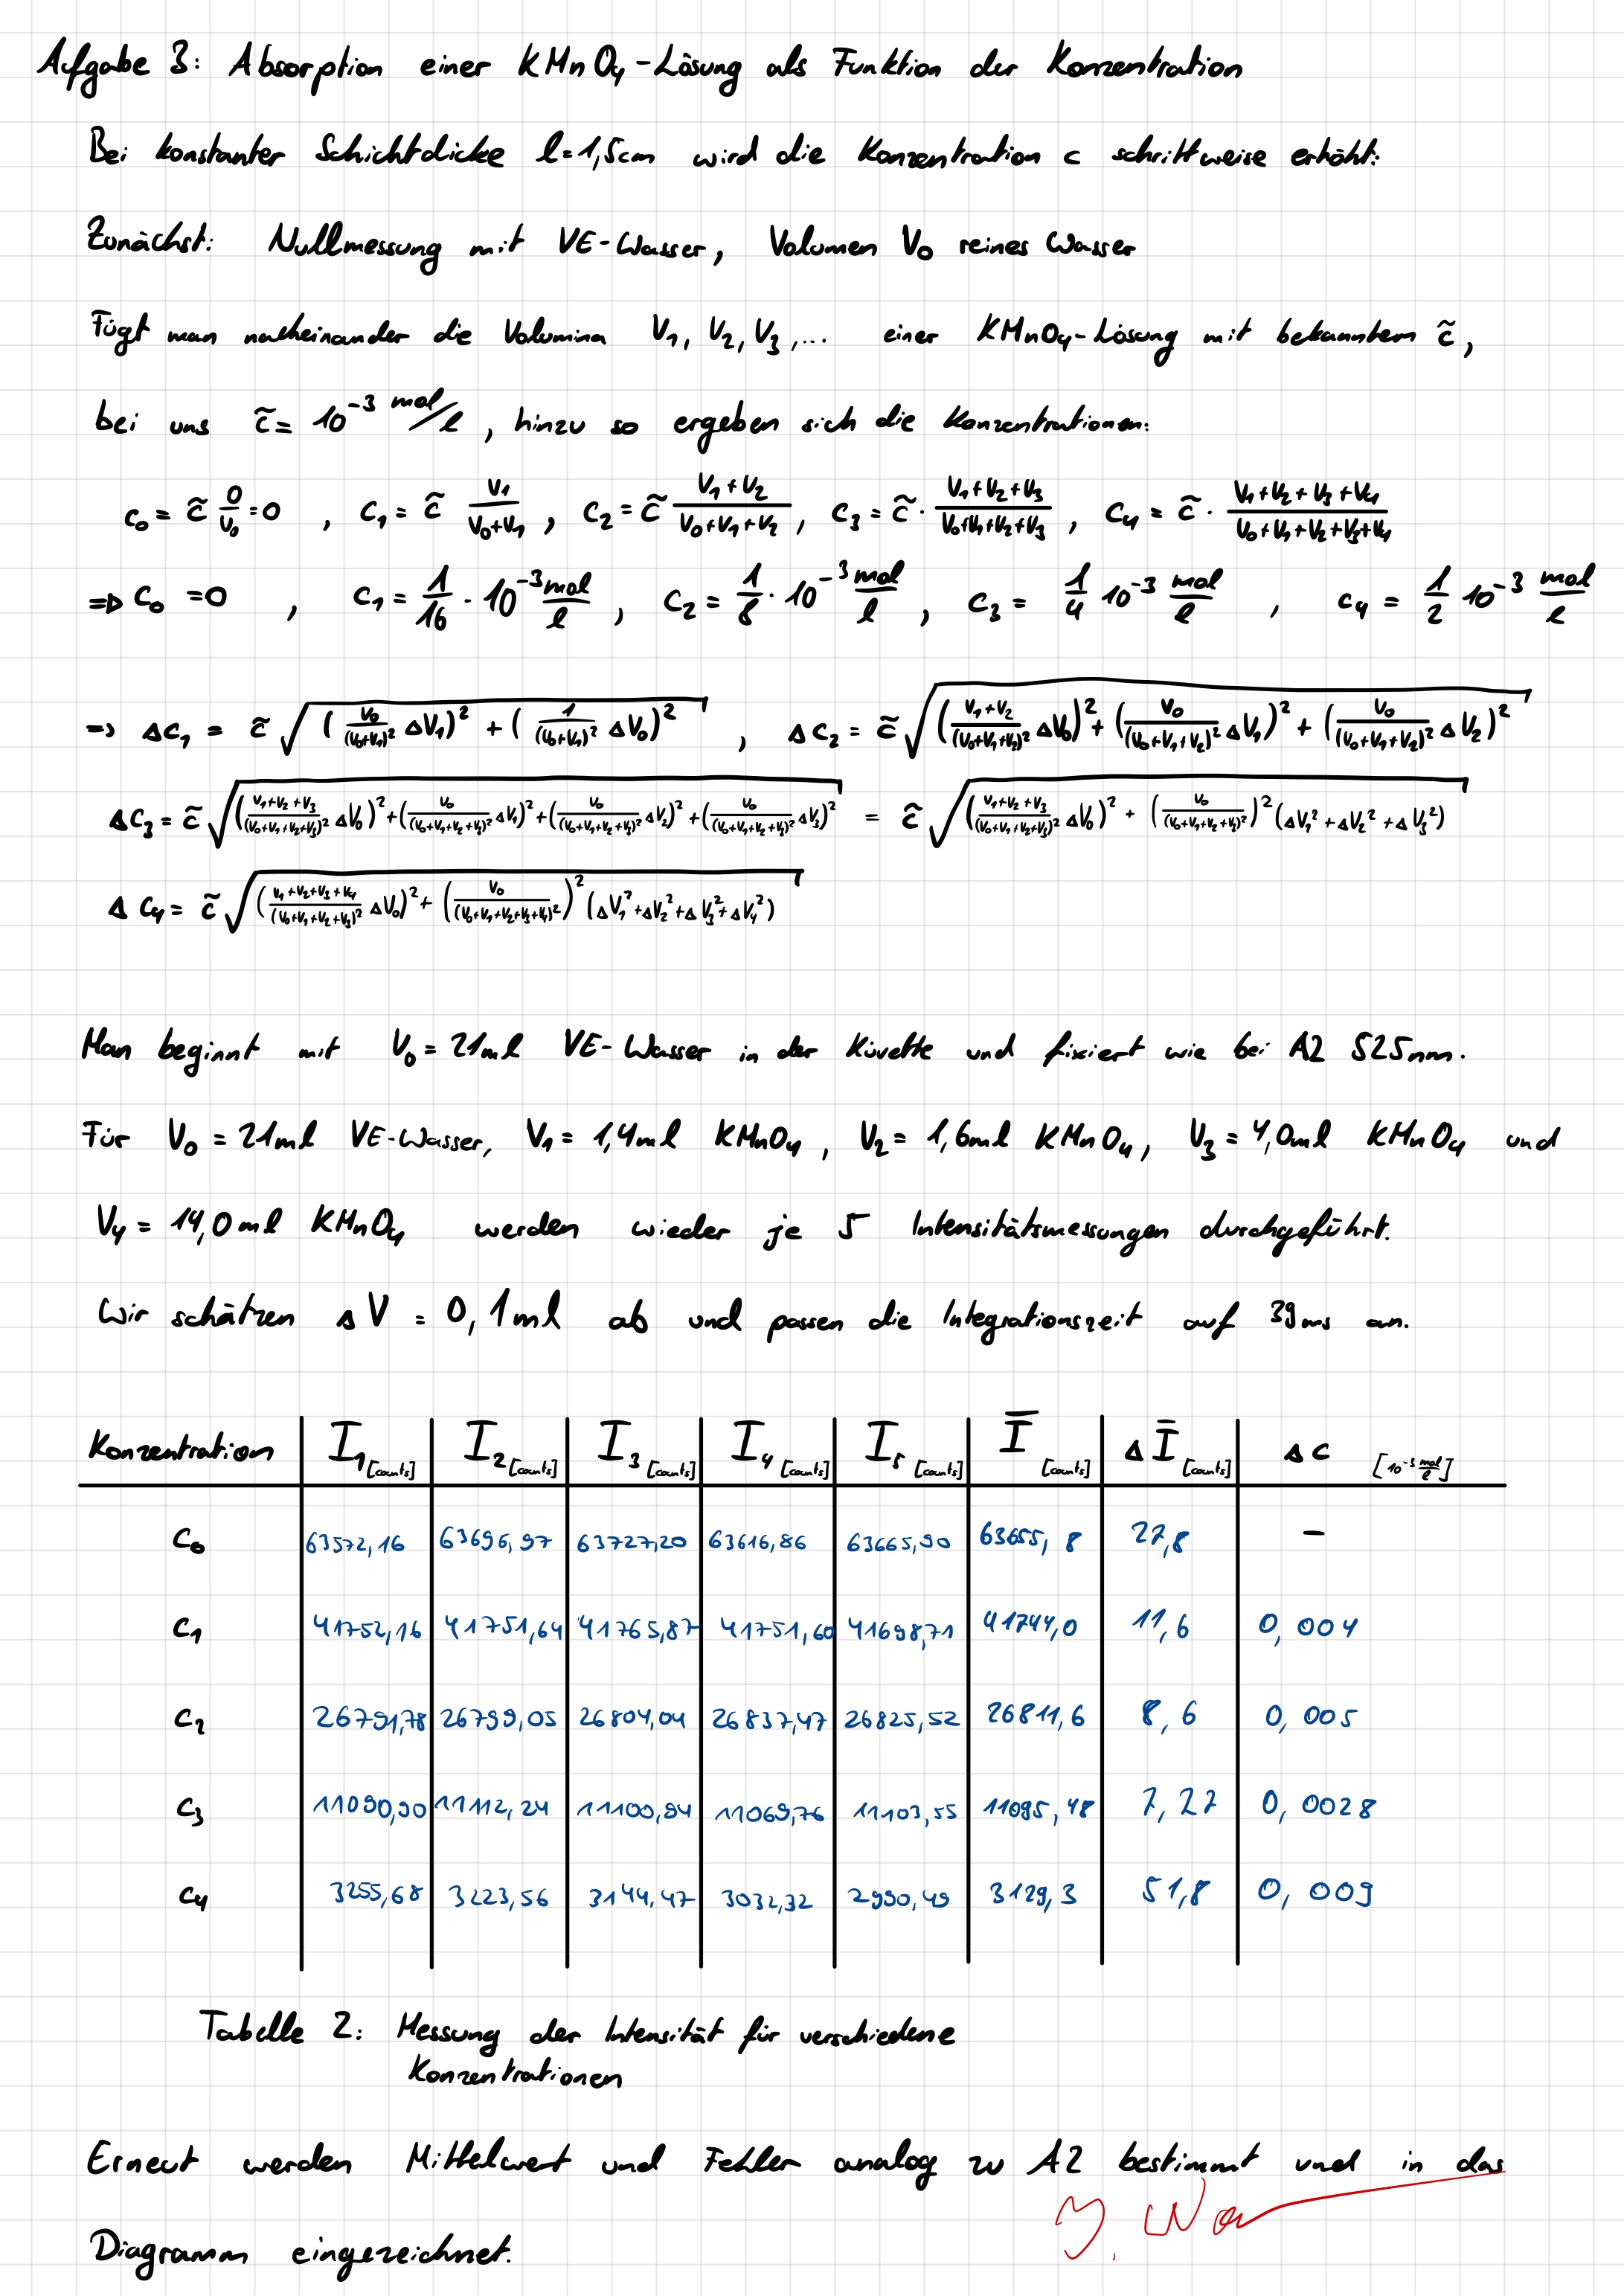 Aufgabe 3: Absorption einer KMnO₄-Lösung als Funktion der Konzentration
Bei konstanter Schichtdicke l=1,5cm wird die Konzentration c schrittweise erhöht:
Zunächst: Nullmessung mit VE-Wasser, Volumen V₀ reines Wasser
Fügt man nacheinander die Volumina V₁, V₂, V₃,... einer KMnO₄-Lösung mit bekanntem c̃,
bei uns c̃ = 10⁻³ mol/l, hinzu so ergeben sich die Konzentrationen:
c₀ = c̃ 0/V₀ = 0 , c₁ = c̃ V₁/(V₀+V₁) , c₂ = c̃ (V₁+V₂)/(V₀+V₁+V₂) , c₃ = c̃ · (V₁+V₂+V₃)/(V₀+V₁+V₂+V₃) , c₄ = c̃ · (V₁+V₂+V₃+V₄)/(V₀+V₁+V₂+V₃+V₄)
=> c₀ = 0 , c₁ = 1/16 · 10⁻³ mol/l , c₂ = 1/8 · 10⁻³ mol/l , c₃ = 1/4 10⁻³ mol/l , c₄ = 1/2 10⁻³ mol/l
=> Δc₁ = c̃ √((V₀/(V₀+V₁)² ΔV₁)² + (1/(V₀+V₁)² ΔV₀)²) , Δc₂ = c̃ √(((V₁+V₂)/(V₀+V₁+V₂)² ΔV₀)² + (V₀/(V₀+V₁+V₂)² ΔV₁)² + (V₀/(V₀+V₁+V₂)² ΔV₂)²)
Δc₃ = c̃ √(((V₁+V₂+V₃)/(V₀+V₁+V₂+V₃)² ΔV₀)² + (V₀/(V₀+V₁+V₂+V₃)² ΔV₁)² + (V₀/(V₀+V₁+V₂+V₃)² ΔV₂)² + (V₀/(V₀+V₁+V₂+V₃)² ΔV₃)²) = c̃ √(((V₁+V₂+V₃)/(V₀+V₁+V₂+V₃)² ΔV₀)² + (V₀/(V₀+V₁+V₂+V₃)²)² (ΔV₁² + ΔV₂² + ΔV₃²))
Δc₄ = c̃ √(((V₁+V₂+V₃+V₄)/(V₀+V₁+V₂+V₃)² ΔV₀)² + (V₀/(V₀+V₁+V₂+V₃+V₄)²)² (ΔV₁² + ΔV₂² + ΔV₃² + ΔV₄²))
Man beginnt mit V₀ = 21ml VE-Wasser in der Küvette und fixiert wie bei A2 525nm.
Für V₀ = 21ml VE-Wasser, V₁ = 1,4ml KMnO₄, V₂ = 1,6ml KMnO₄, V₃ = 4,0ml KMnO₄ und
V₄ = 14,0ml KMnO₄ werden wieder je 5 Intensitätsmessungen durchgeführt.
Wir schätzen ΔV = 0,1ml ab und passen die Integrationszeit auf 39ms an.
Konzentration I₁ [counts] I₂ [counts] I₃ [counts] I₄ [counts] I₅ [counts] Ī [counts] ΔĪ [counts] Δc [10⁻³ mol/l]
c₀ 63572,16 63696,97 63727,20 63616,86 63665,90 63655,8 27,8 –
c₁ 41752,16 41751,64 41765,87 41751,60 41698,71 41744,0 11,6 0,004
c₂ 26791,78 26799,05 26804,04 26837,47 26825,52 26811,6 8,6 0,005
c₃ 11090,90 11112,24 11100,94 11069,76 11103,55 11095,48 7,27 0,0028
c₄ 3255,68 3223,56 3144,47 3032,32 2990,49 3129,3 51,8 0,009
Tabelle 2: Messung der Intensität für verschiedene
Konzentrationen
Erneut werden Mittelwert und Fehler analog zu A2 bestimmt und in das
Diagramm eingezeichnet.